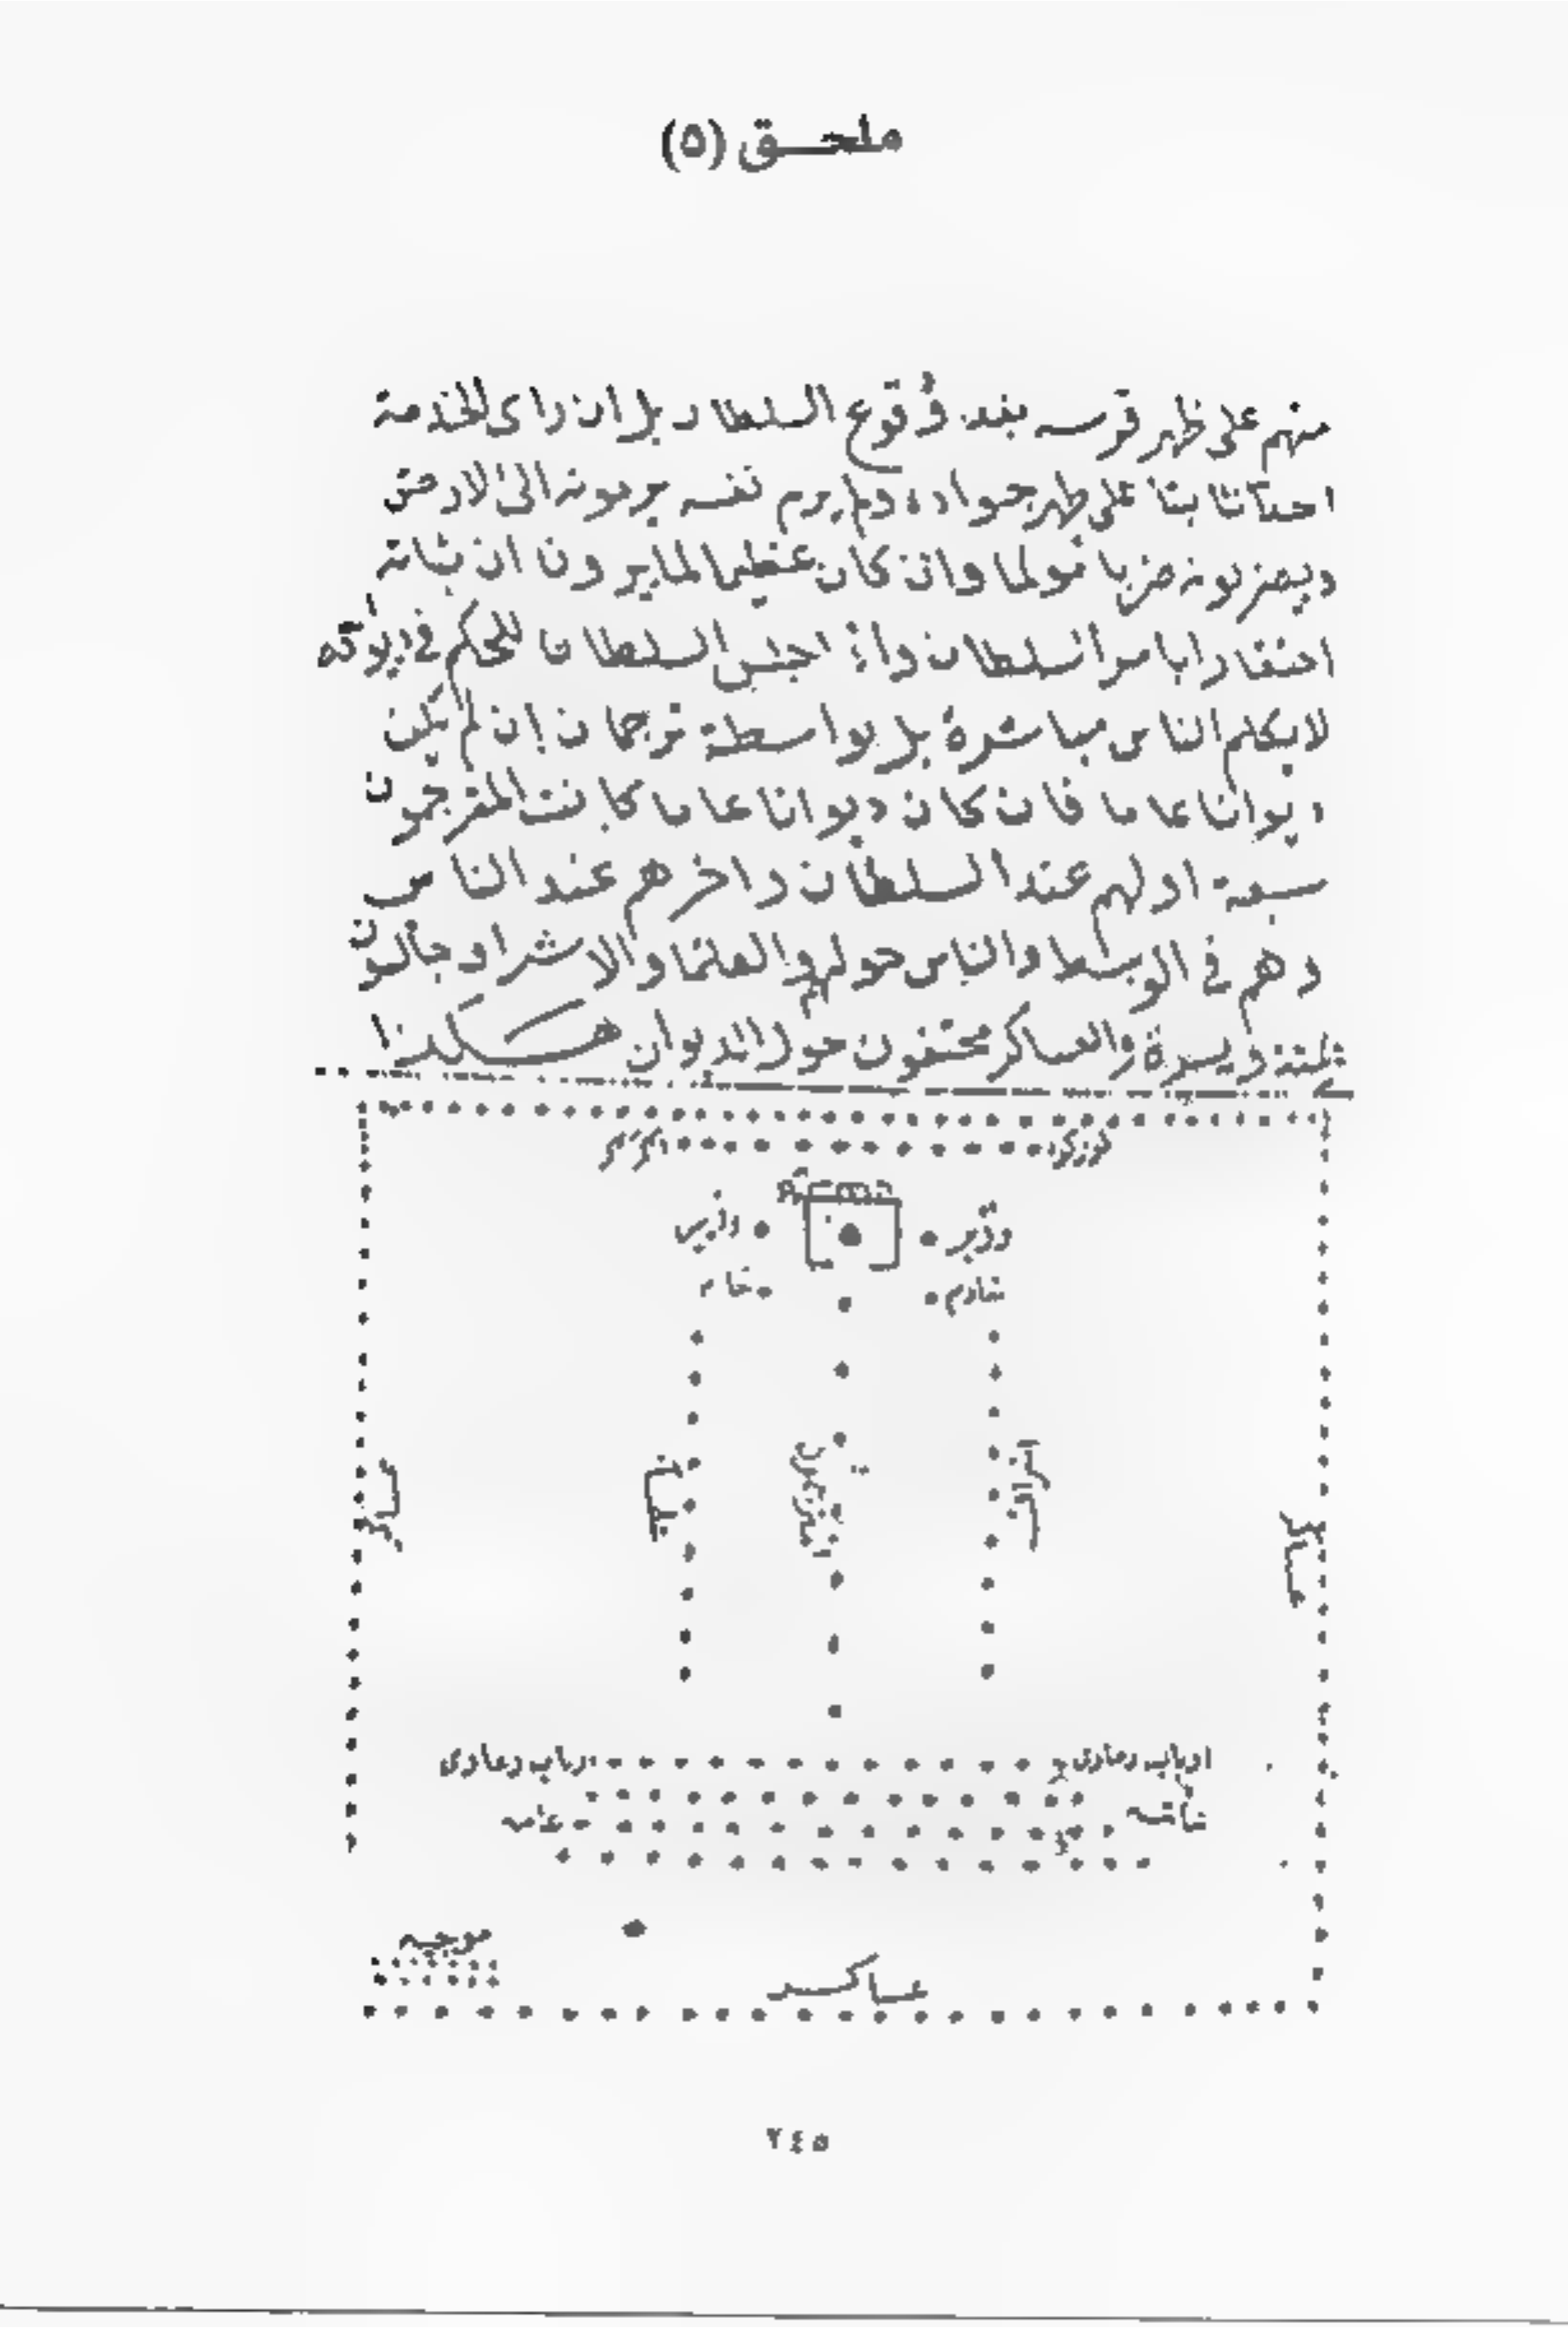 ملحـــق (٥)
منهم على ظهر فرسه بعد وقوع السلطان بل ان راى الخدمة
احدا ثابتا على ظهر جواده ولم يرم نفسه يجرونه الى الارض
ويضربونه ضربا مولما وان كان عظيما لما يرون ان ثباته
احتقارا بامر السلطان واذا جلس السلطان للحكم في ديوانه
لا يكلم الناس مباشرة بل بواسطة ترجمان ان لم يكن
ديوانا عاما فان كان ديوانا عاما كانت المترجمون
سبعة اولهم عند السلطان واخرهم عند الناس
وهم في الوسط والناس حولهم والعلما والاشراف جالسون
يمنة ويسرة والعساكر محتفون حول الديوان هكذا
وزير
وزير
خادم
عساكر
عساكر
ارباب دعاوى
ارباب دعاوى
عامه
موجيه
عساكر
٢٤٥